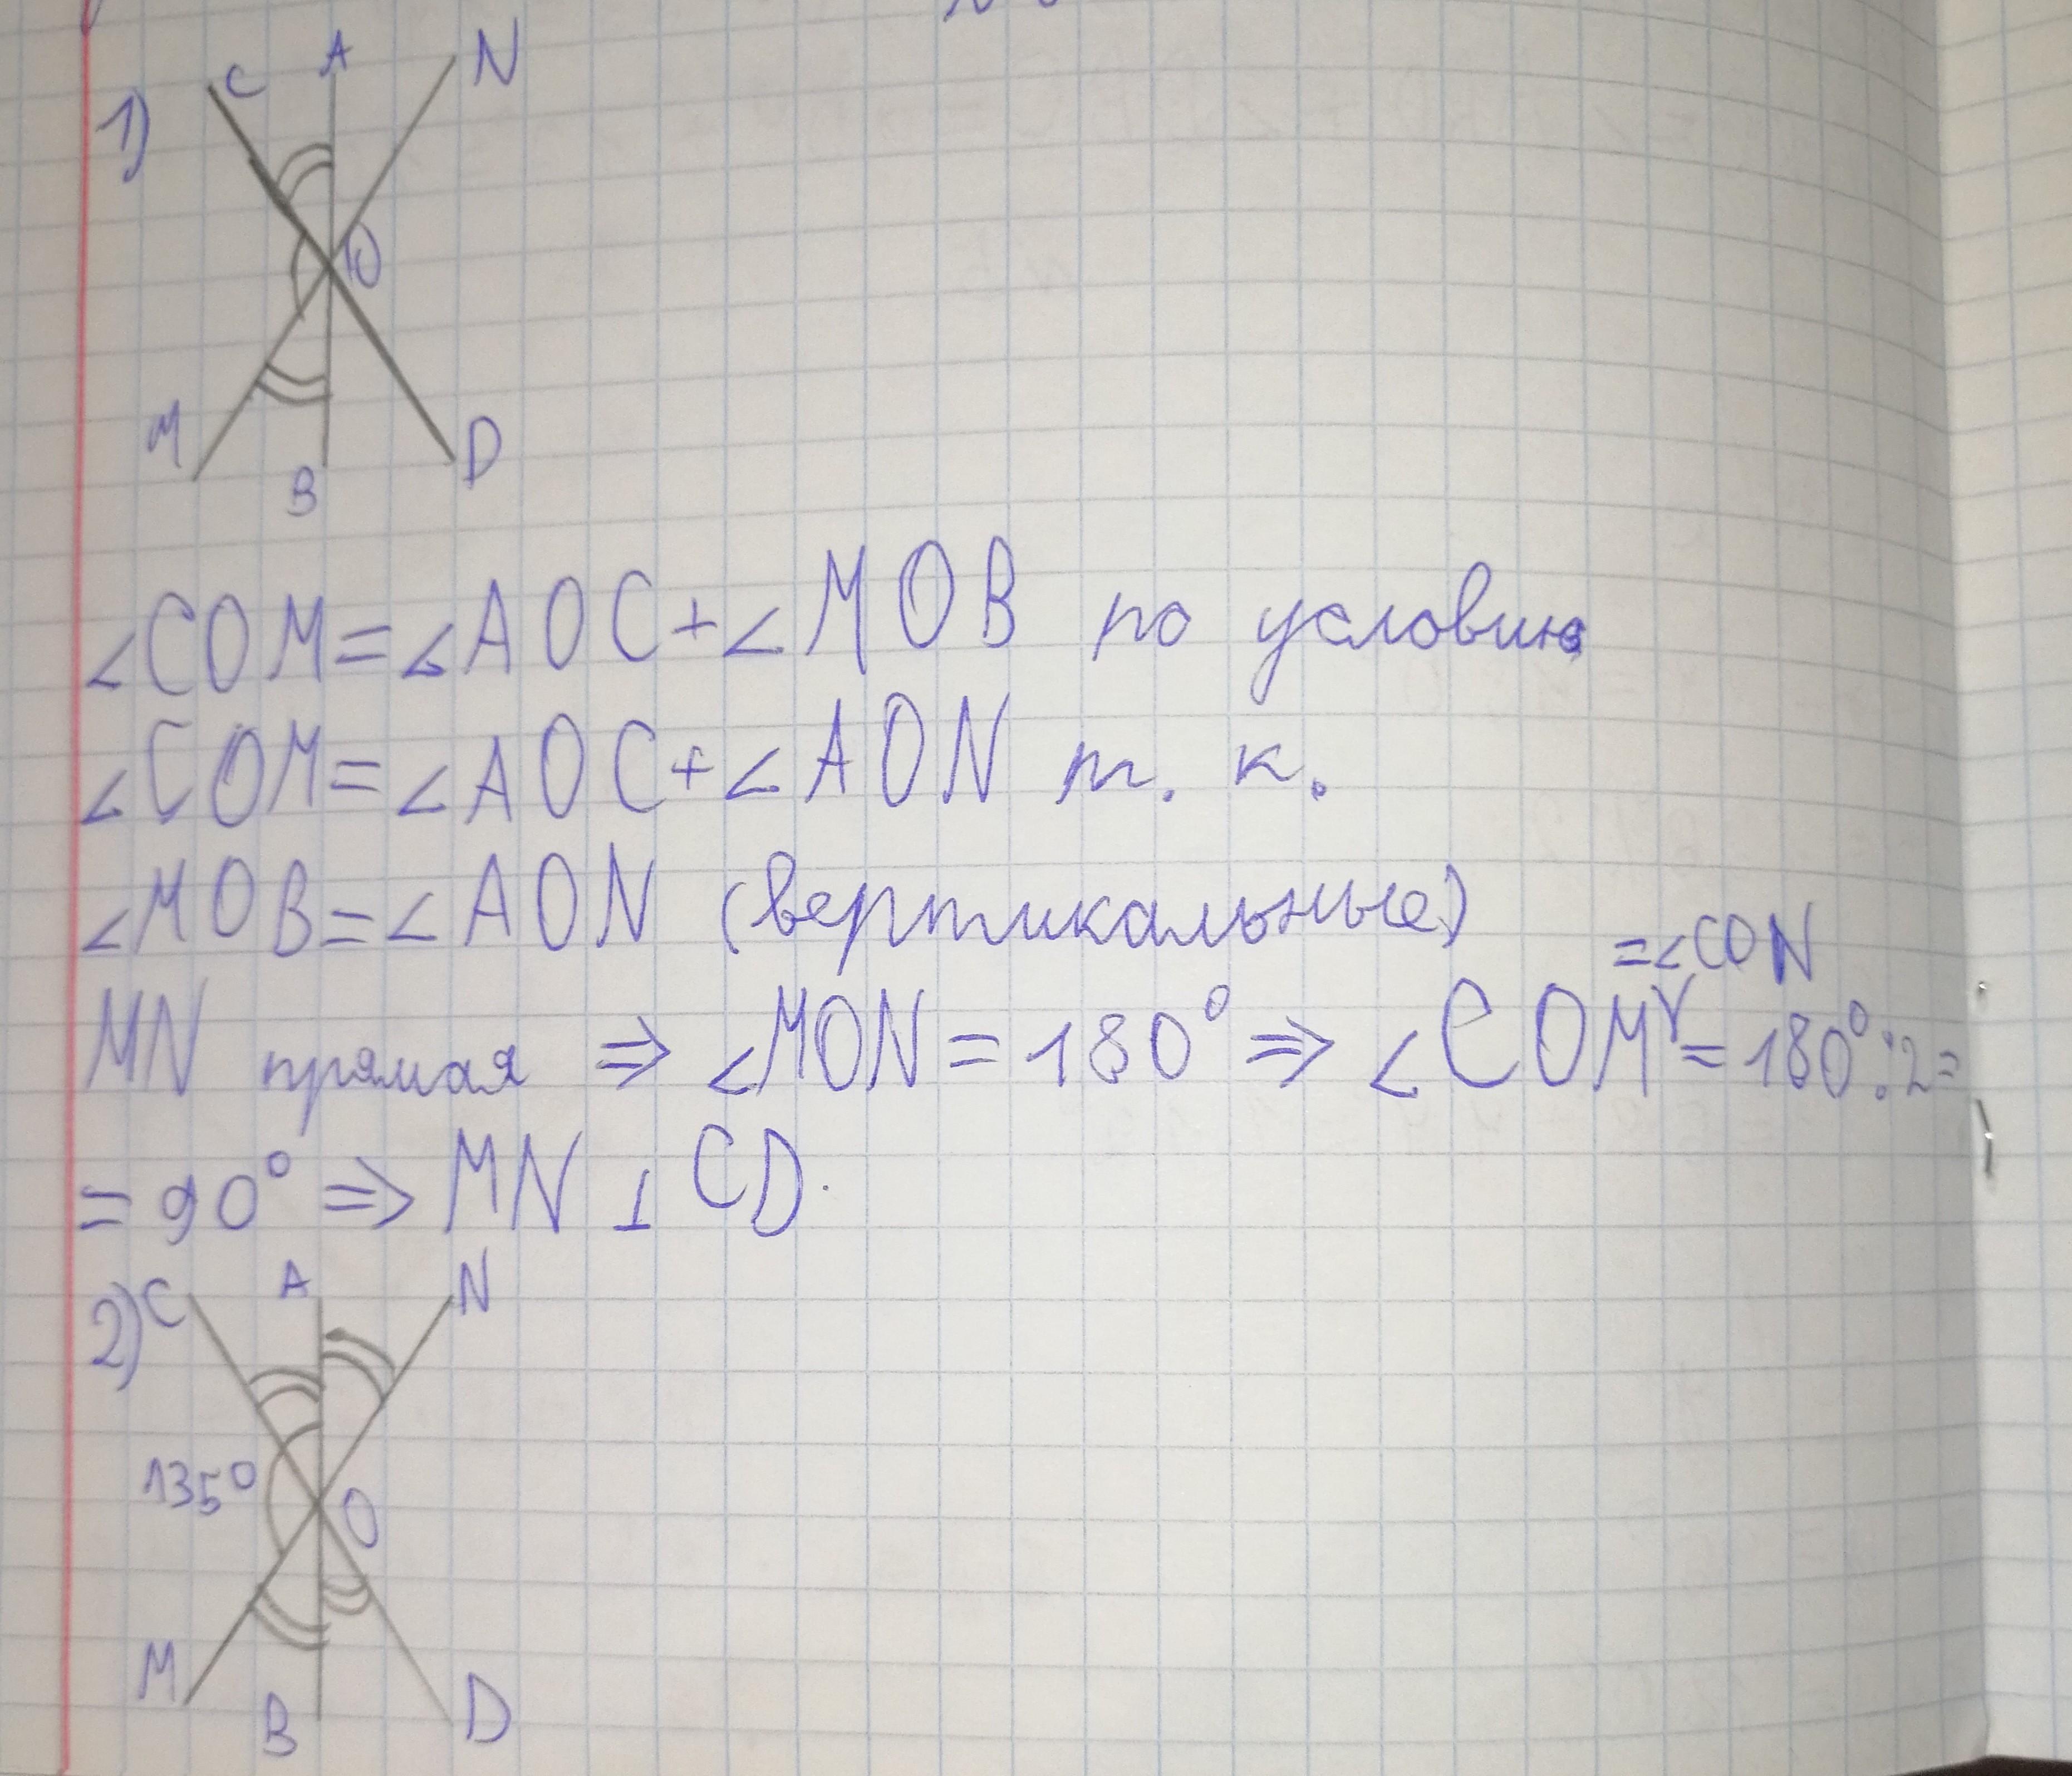 1)
C A N
O
M B D
∠COM=∠AOC+∠MOB по условию
∠COM=∠AOC+∠AON т. к.
∠MOB=∠AON (вертикальные)
=∠CON
MN прямая ⇒ ∠MON=180° ⇒ ∠COM=180°:2=
=90° ⇒ MN ⊥ CD.
2) C A N
135° O
M B D